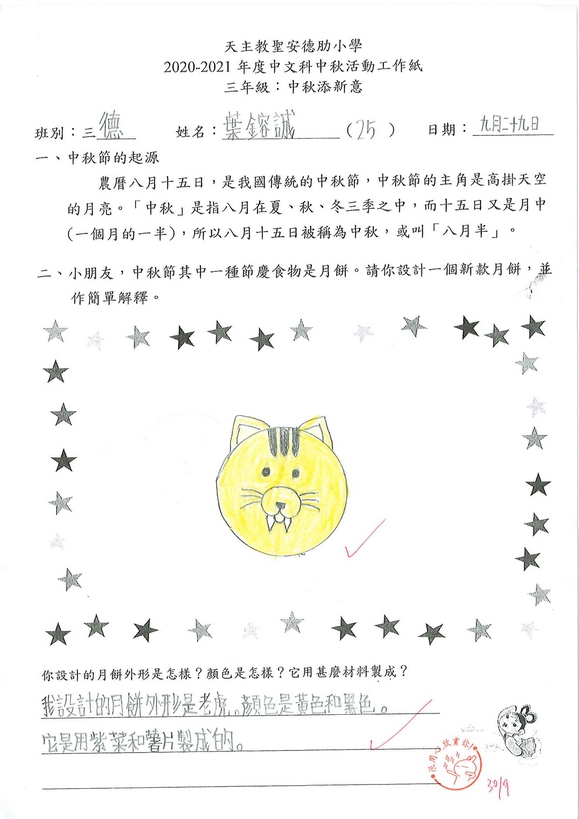 天主教聖安德肋小學
2020-2021 年度中文科中秋活動工作紙
三年級：中秋添新意
班別：三 德 姓名：葉鎔誠（25） 日期：九月二十九日
一、中秋節的起源
農曆八月十五日，是我國傳統的中秋節，中秋節的主角是高掛天空
的月亮。「中秋」是指八月在夏、秋、冬三季之中，而十五日又是月中
(一個月的一半)，所以八月十五日被稱為中秋，或叫「八月半」。
二、小朋友，中秋節其中一種節慶食物是月餅。請你設計一個新款月餅，並
作簡單解釋。
你設計的月餅外形是怎樣？顏色是怎樣？它用甚麼材料製成？
我設計的月餅外形是老虎。顏色是黃色和黑色。
它是用紫菜和薯片製成的。
30/9